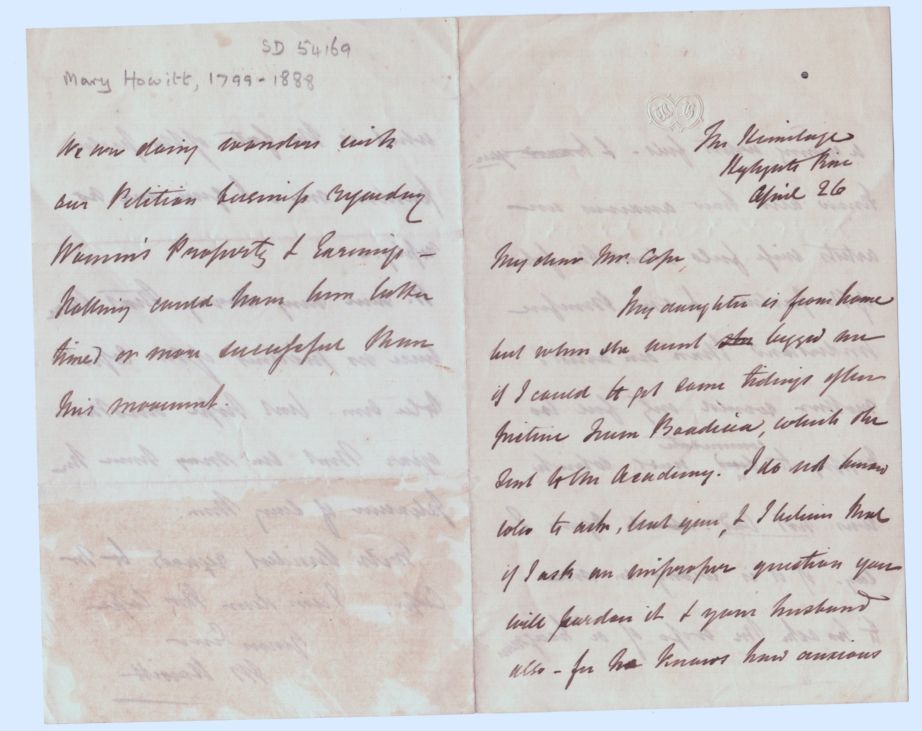 SD 54169
Mary Howitt, 1799-1888
We are doing wonders with
our Petition business regarding
Women's Property & Earnings –
Nothing could have been better
timed or more successful than
this movement.
The Hermitage
Highgate Rise
April 26
My dear Mrs. Cope,
My daughter is from home
but when she went she begged me
if I could to get some tidings of her
picture Queen Boadicea, which she
sent to the Academy. I do not know
who to ask, but you, & I believe that
if I ask an improper question you
will pardon it & your husband
also – for he knows how anxious